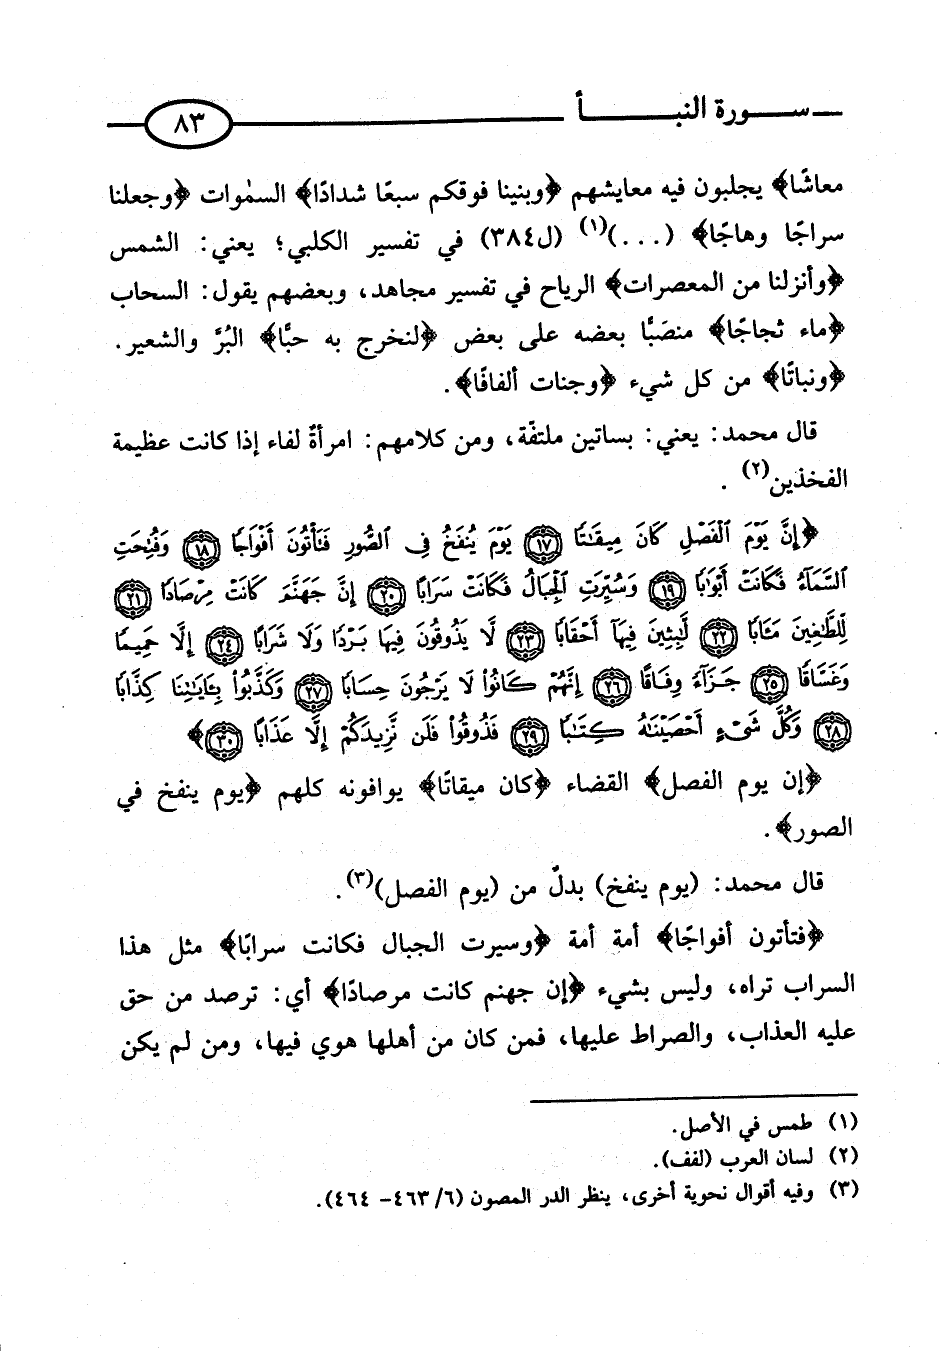 سورة النبأ ٨٣
معاشًا﴾ يجلبون فيه معايشهم ﴿وبنينا فوقكم سبعًا شدادًا﴾ السمٰوات ﴿وجعلنا
سراجًا وهاجًا﴾ (...)(١) (ل٣٨٤) في تفسير الكلبي؛ يعني: الشمس
﴿وأنزلنا من المعصرات﴾ الرياح في تفسير مجاهد، وبعضهم يقول: السحاب
﴿ماء ثجاجًا﴾ منصَبًّا بعضه على بعض ﴿لنخرج به حبًّا﴾ البُرَّ والشعير.
﴿ونباتًا﴾ من كل شيء ﴿وجنات ألفافًا﴾.
قال محمد: يعني: بساتين ملتفّة، ومن كلامهم: امرأةٌ لفاء إذا كانت عظيمة
الفخذين(٢).
﴿إِنَّ يَوْمَ ٱلْفَصْلِ كَانَ مِيقَٰتًا ١٧ يَوْمَ يُنفَخُ فِى ٱلصُّورِ فَتَأْتُونَ أَفْوَاجًا ١٨ وَفُتِحَتِ
ٱلسَّمَآءُ فَكَانَتْ أَبْوَٰبًا ١٩ وَسُيِّرَتِ ٱلْجِبَالُ فَكَانَتْ سَرَابًا ٢٠ إِنَّ جَهَنَّمَ كَانَتْ مِرْصَادًا ٢١
لِّلطَّٰغِينَ مَـَٔابًا ٢٢ لَّٰبِثِينَ فِيهَآ أَحْقَابًا ٢٣ لَّا يَذُوقُونَ فِيهَا بَرْدًا وَلَا شَرَابًا ٢٤ إِلَّا حَمِيمًا
وَغَسَّاقًا ٢٥ جَزَآءً وِفَاقًا ٢٦ إِنَّهُمْ كَانُوا۟ لَا يَرْجُونَ حِسَابًا ٢٧ وَكَذَّبُوا۟ بِـَٔايَٰتِنَا كِذَّابًا
٢٨ وَكُلَّ شَىْءٍ أَحْصَيْنَٰهُ كِتَٰبًا ٢٩ فَذُوقُوا۟ فَلَن نَّزِيدَكُمْ إِلَّا عَذَابًا ٣٠﴾
﴿إن يوم الفصل﴾ القضاء ﴿كان ميقاتًا﴾ يوافونه كلهم ﴿يوم ينفخ في
الصور﴾.
قال محمد: (يوم ينفخ) بدلٌ من (يوم الفصل)(٣).
﴿فتأتون أفواجًا﴾ أمة أمة ﴿وسيرت الجبال فكانت سرابًا﴾ مثل هذا
السراب تراه، وليس بشيء ﴿إن جهنم كانت مرصادًا﴾ أي: ترصد من حق
عليه العذاب، والصراط عليها، فمن كان من أهلها هوي فيها، ومن لم يكن
(١) طمس في الأصل.
(٢) لسان العرب (لفف).
(٣) وفيه أقوال نحوية أخرى، ينظر الدر المصون (٦/ ٤٦٣- ٤٦٤).